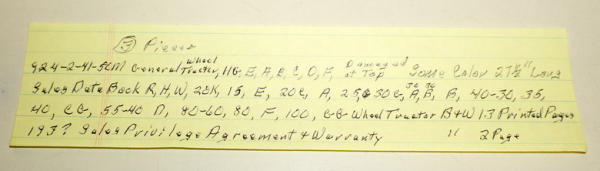 ③ Pieces
924-2-41-5CM General Wheel Tractor, HG, E, A, B, C, D, F, Damaged at Top Some Color 27½" Long
Sales Data Book R, H, W, 20K, 15, E, 20C, A, 25, 30G, A, B, B, 40-30, 35,
40, CG, 55-40 D, 80-60, 80, F, 100, GG Wheel Tractor B+W 13 Printed Pages
193? Sales Privilege Agreement + Warranty " 2 Page